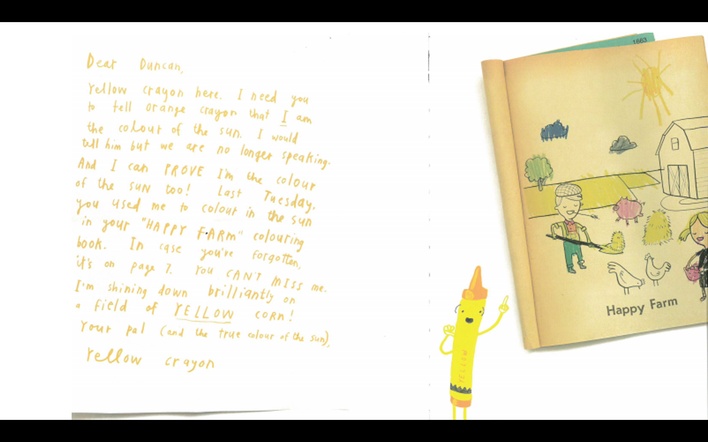 Dear Duncan,
Yellow crayon here. I need you
to tell orange crayon that I am
the colour of the sun. I would
tell him but we are no longer speaking.
And I can PROVE I'm the colour
of the sun too! Last Tuesday,
you used me to colour in the sun
in your "HAPPY FARM" colouring
book. In case you've forgotten,
it's on page 7. You CAN'T MISS me.
I'm shining down brilliantly on
a field of YELLOW corn!
Your pal (and the true colour of the sun),
Yellow crayon
YELLOW
Happy Farm